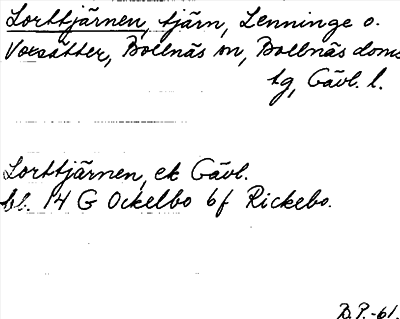 Lorttjärnen, tjärn, Lenninge o.
Voxsätter, Bollnäs sn, Bollnäs doms
tg, Gävl. l.
Lorttjärnen, ek Gävl.
bl. 14 G Ockelbo 6f Rickebo.
B.P.-61.